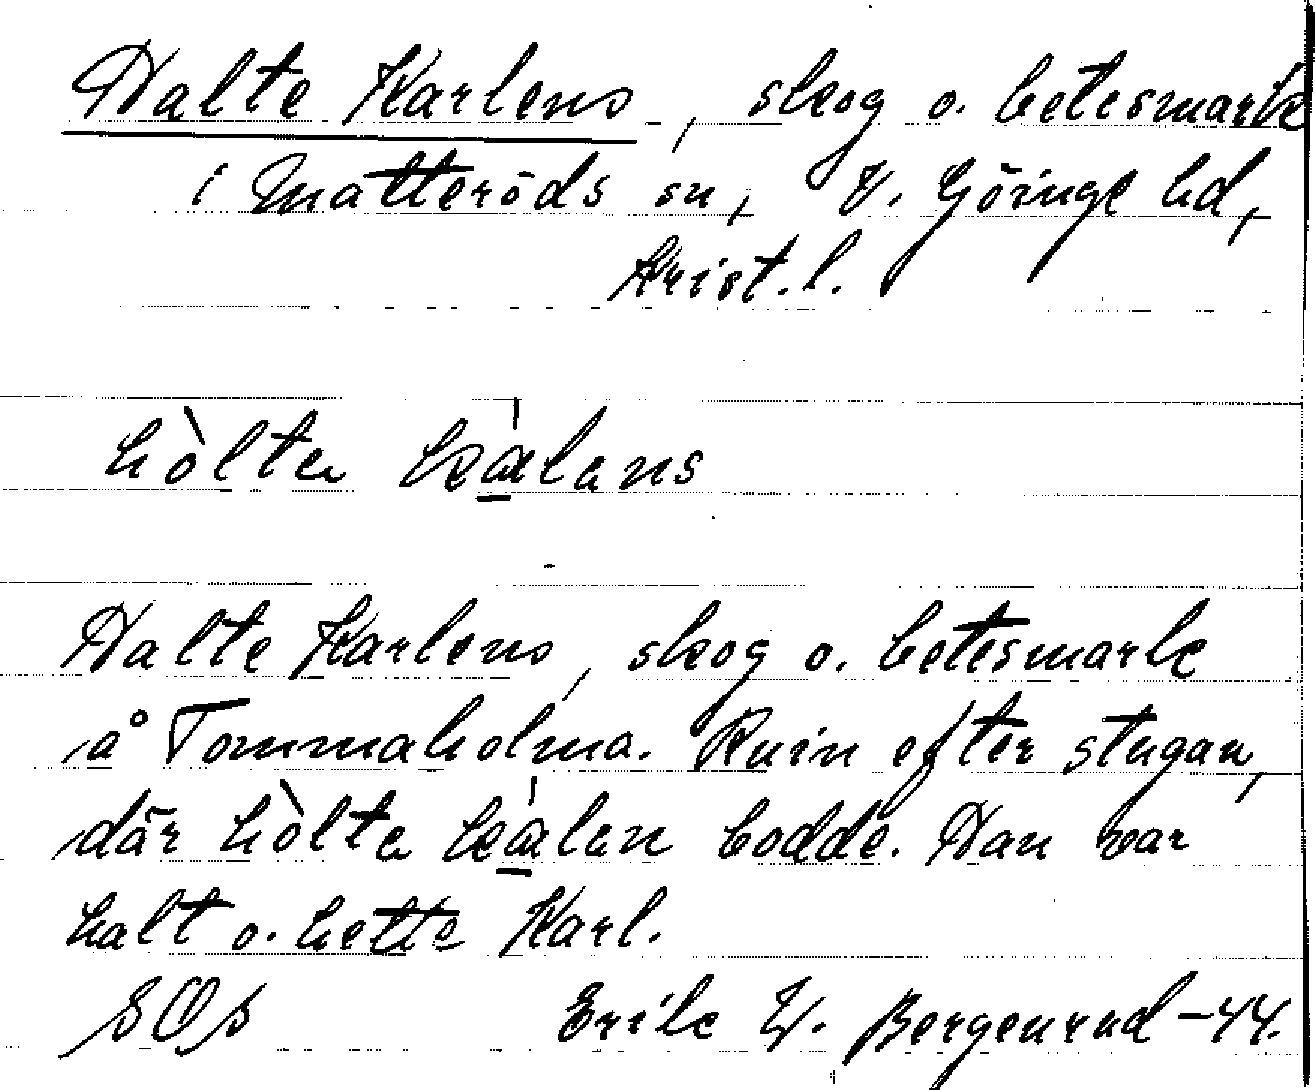 Halte Karlens, skog o. betesmark
i Matteröds sn, V. Göinge hd,
Krist.l.
hòlta kálans
Halte Karlens, skog o. betesmark
å Tommaholma. Ruin efter stugan,
där hòlta kálen bodde. Han var
halt o. hette Karl.
SOs Erik W. Bergenrud -44.